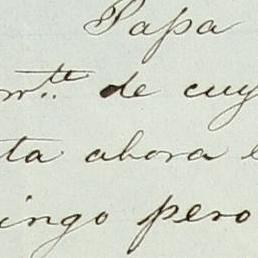 Papa
m.tte de cuy
ta ahora e
ingo pero